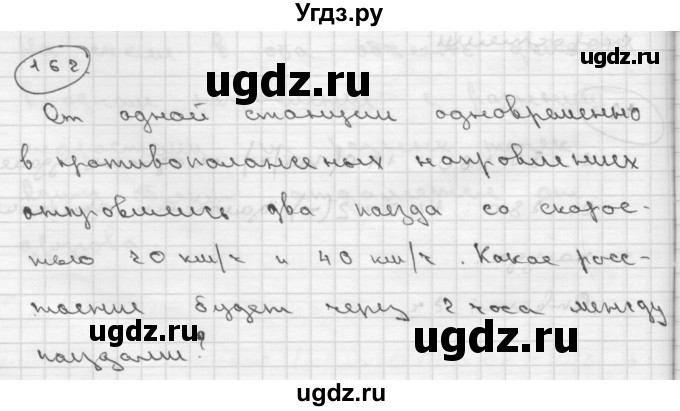 Угдз.ру
162.
ugdz.ru
ugdz.ru
ugdz.ru
От одной станции одновременно
в противоположных направлениях
отправились два поезда со скорос-
ugdz.ru
ugdz.ru
тью 20 км/ч и 40 км/ч. Какое расс-
тояние будет через 2 часа между
поездами?
ugdz.ru
ugdz.ru
ugdz.ru
ugdz.ru